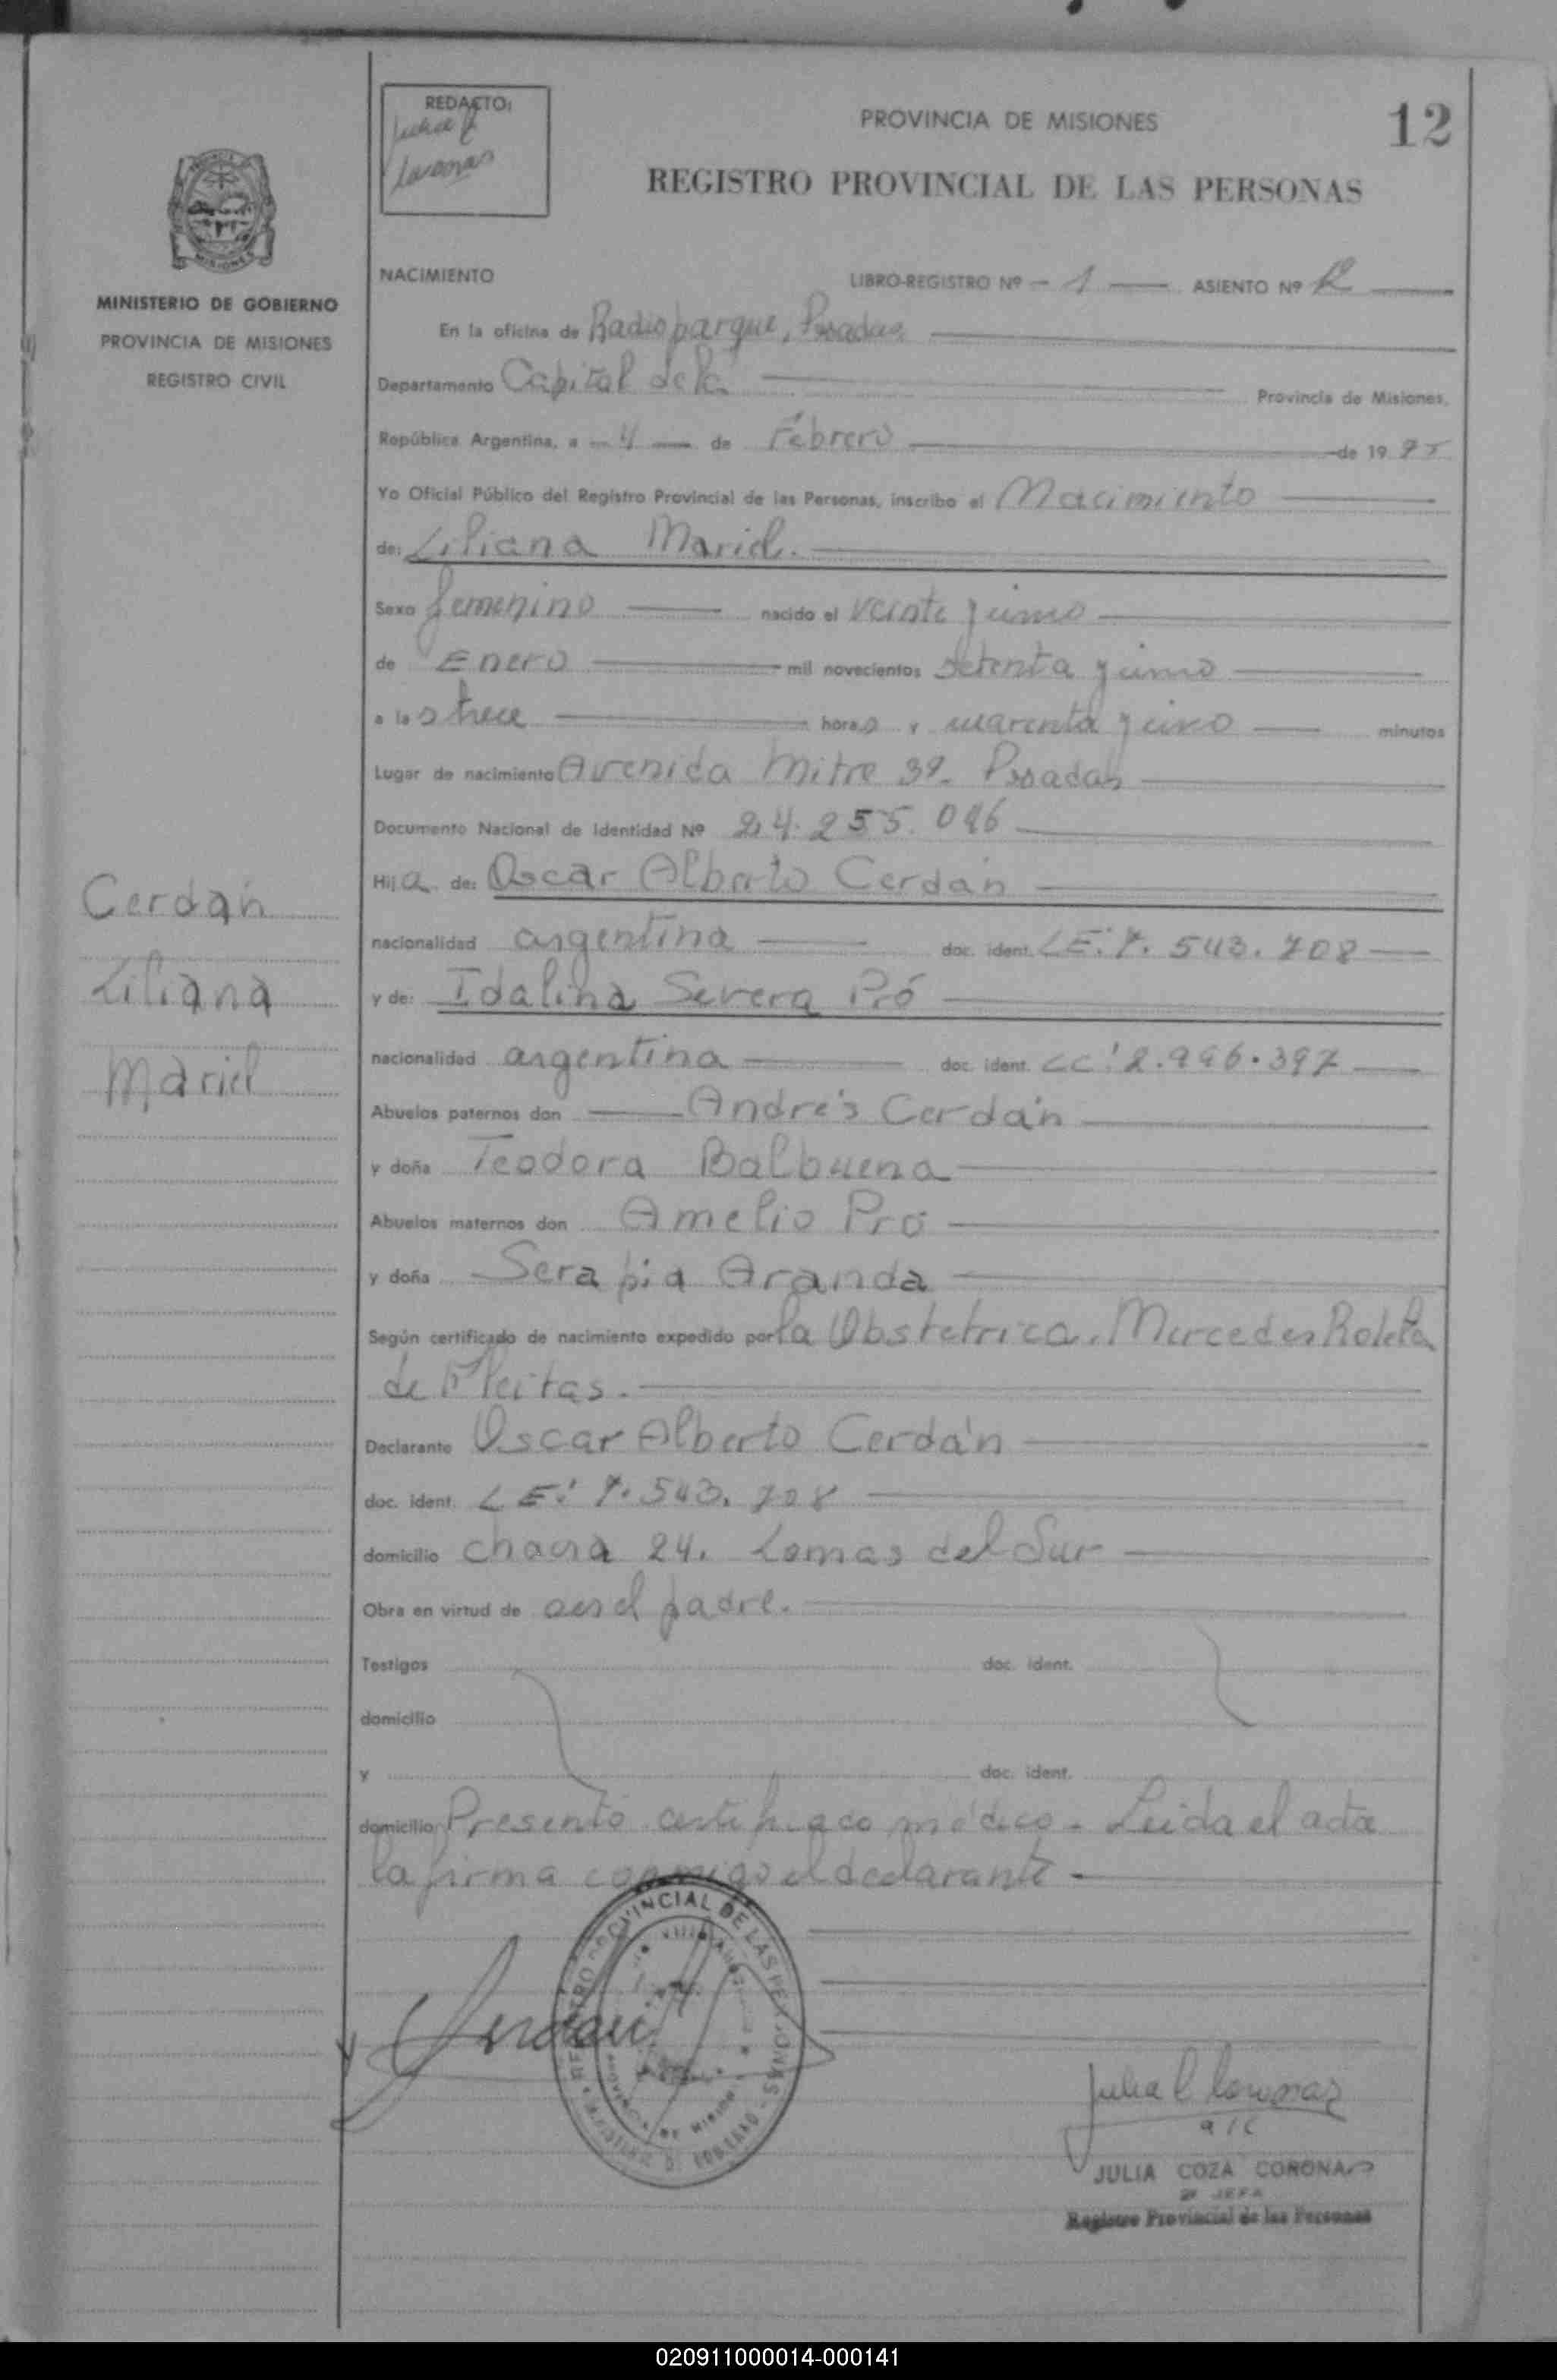 REDACTO:
12
PROVINCIA DE MISIONES
REGISTRO PROVINCIAL DE LAS PERSONAS
MISIONES
MINISTERIO DE GOBIERNO
PROVINCIA DE MISIONES
REGISTRO CIVIL
NACIMIENTO LIBRO-REGISTRO Nº 1 ASIENTO Nº
En la oficina de Radioparque, Posadas
Departamento Capital de la Provincia de Misiones,
República Argentina, a 4 de Febrero de 19
Yo Oficial Público del Registro Provincial de las Personas, inscribo el Nacimiento
de: Liliana Mariel.
Sexo femenino nacido el veinte y uno
de Enero mil novecientos setenta y
a las trece horas y cuarenta y cinco minutos
Lugar de nacimiento Avenida Mitre 39- Posadas
Documento Nacional de Identidad Nº 24.255.0
Hija de: Oscar Alberto Cerdán
nacionalidad argentina doc. ident. LE: 7.543.708
y de: Idalina Severa Pró
nacionalidad argentina doc. ident. LC: 2.996.397
Abuelos paternos don Andrés Cerdán
y doña Teodora Balbuena
Abuelos maternos don Amelio Pró
y doña Serapia Aranda
Según certificado de nacimiento expedido por la Obstetrica. Mercedes
de Fleitas.
Declarante Oscar Alberto Cerdán
doc. ident. LE: 7.543.708
domicilio chacra 24. Lomas del Sur
Obra en virtud de ser el padre.
Testigos doc. ident.
domicilio
y doc. ident.
domicilio Presentó certificado médico - Leida el acta
la firma conmigo el declarante -
Cerdán
Liliana
Mariel
Cerdán
REGISTRO PROVINCIAL DE LAS PERSONAS
a/c
JULIA COZA CORONA
2ª JEFA
Registro Provincial de las Personas
020911000014-000141